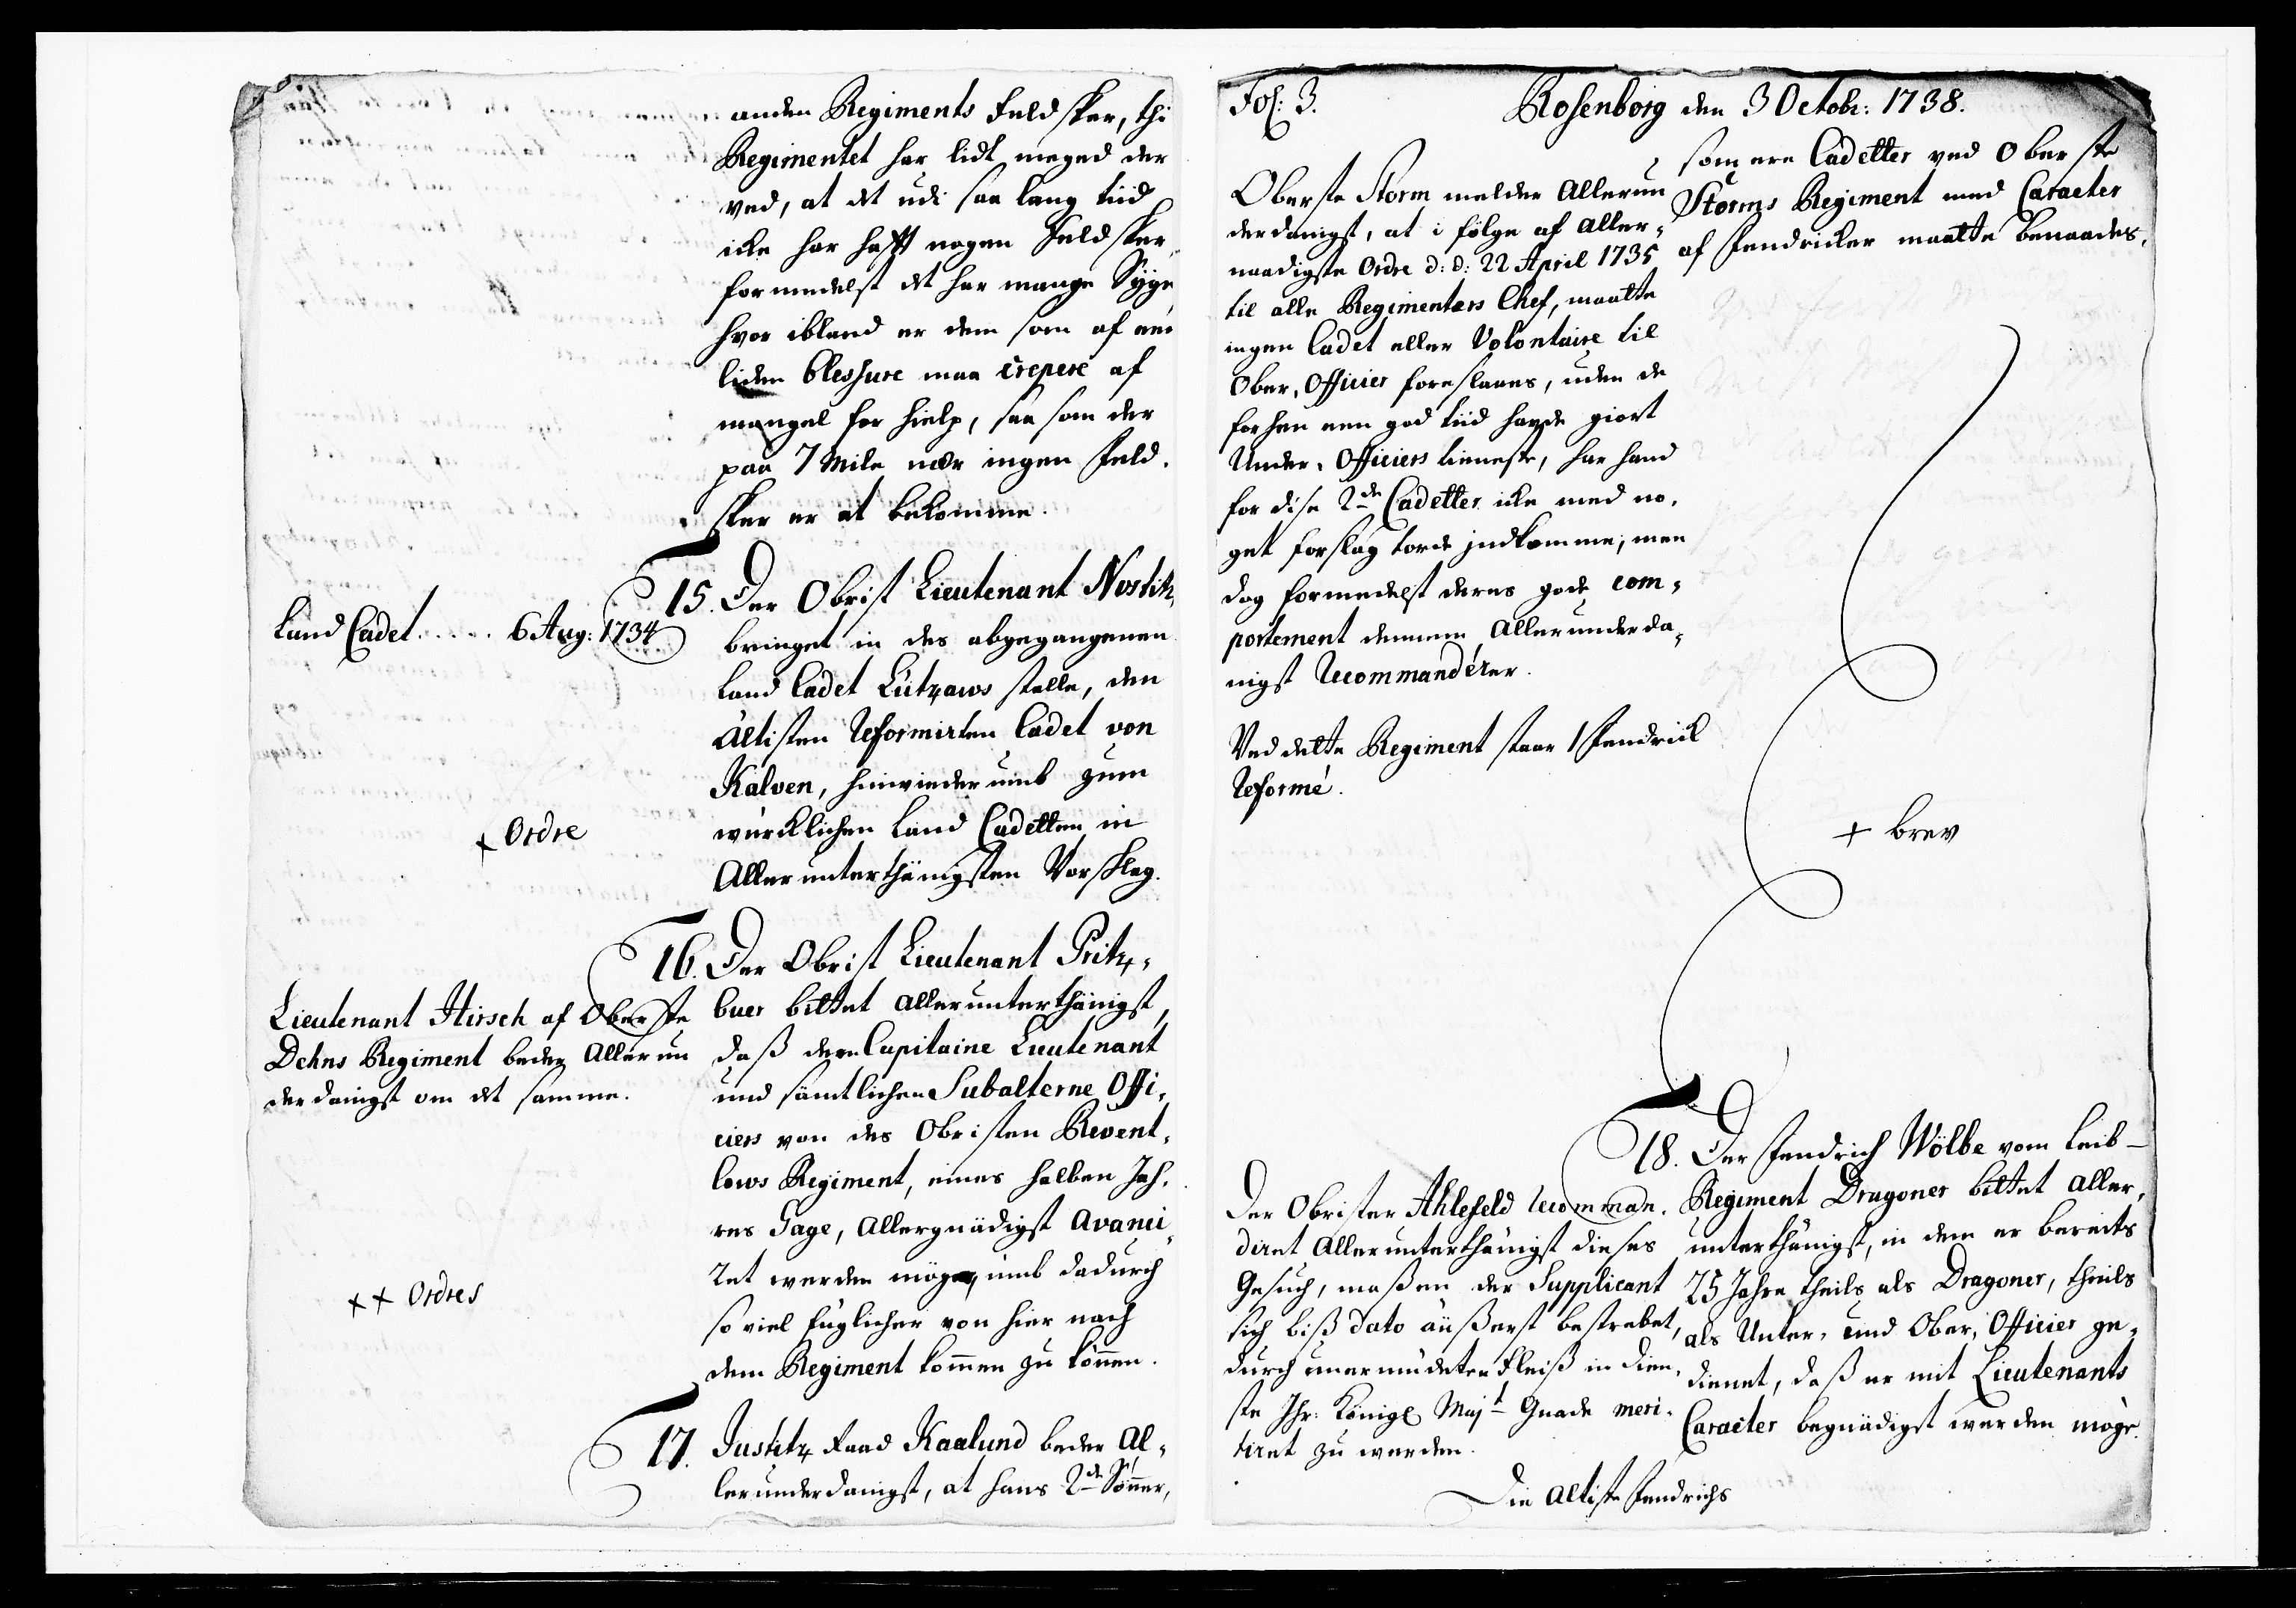 anden Regiments Feldsker, thi
Regimentet har lidt meged der
ved, at det udi saa lang tiid
icke har hafft nogen Feldsker
formedelst det har mange Syge
hvor ibland er dem som af en
liden blessure maa crepere af
mangel for hielp, saa som der
paa 7 Mile nær ingen Feld-
sker er at bekomme.
15. Der Obrist Lieutenant Nostitz
bringet in des abgegangenen
Land Cadet Lützows stelle, den
Ältisten Reformirten Cadet von
Kalven, hinwiederumb zum
würcklichen Land Cadetten in
Allerunterthänigsten Vorschlag.
Land Cadet ..... 6 Aug: 1734
+ Ordre
16. Der Obrist Lieutenant Pritz-
buer bittet allerunterthänigst,
daß dem Capitaine Lieutenant
und sämtlichen Subalterne Offi-
ciers von des Obristen Revent-
lows Regiment, eines halben Jah-
res Gage, Allergnädigst avanci-
ret werden möge, umb dadurch
so viel füglicher von hier nach
dem Regiment kom̅en zu kön̅en.
Lieutenant Hirsch af Oberste
Dehns Regiment beder Allerun
derdanigst om det samme.
++ Ordres
17. Justitz Raad Kaalund beder Al-
lerunderdanigst, at hans 2de Sön̅er,
Fol: 3.
Rosenborg den 3 Octobr: 1738.
som ere Cadetter ved Oberste
Storms Regiment med Caracter
af Fendricker maatte benaades.
Oberste Storm melder Allerun
derdanigst, at i fölge af Aller-
naadigste Ordre d: d: 22 April 1735
til alle Regimenters Chef, maatte
ingen Cadet eller Volontaire til
Ober-Officier foreslaaes, uden de
forhen een god tiid havde giort
Under-Officiers tieneste, har hand
for dise 2de Cadetter icke med no-
get forslag torde indkomme, men
dog formedelst deres gode com-
portement dennem Allerunderda-
nigst Recommanderer.
Ved dette Regiment staar 1 Fendrick
Reformé.
+ brev
18. Der Fendrich Wölbe vom Leib-
Regiment Dragoner bittet aller-
unterthänigst, in dem er bereits
25 Jahre theils als Dragoner, theils
als Unter- und Ober-Officier ge-
dienet, daß er mit Lieutenants
Caracter begnädigst werden möge.
Der Obrister Ahlefeld Recomman-
diret Allerunterthänigst dieses
Gesuch, maßen der Supplicant
sich biß dato äußerst bestrebet,
durch unermüdeten Fleiß in Dien-
ste Ihr: Königl Majt Gnade meri-
tiret zu werden.
Die Altiste Fendrichs